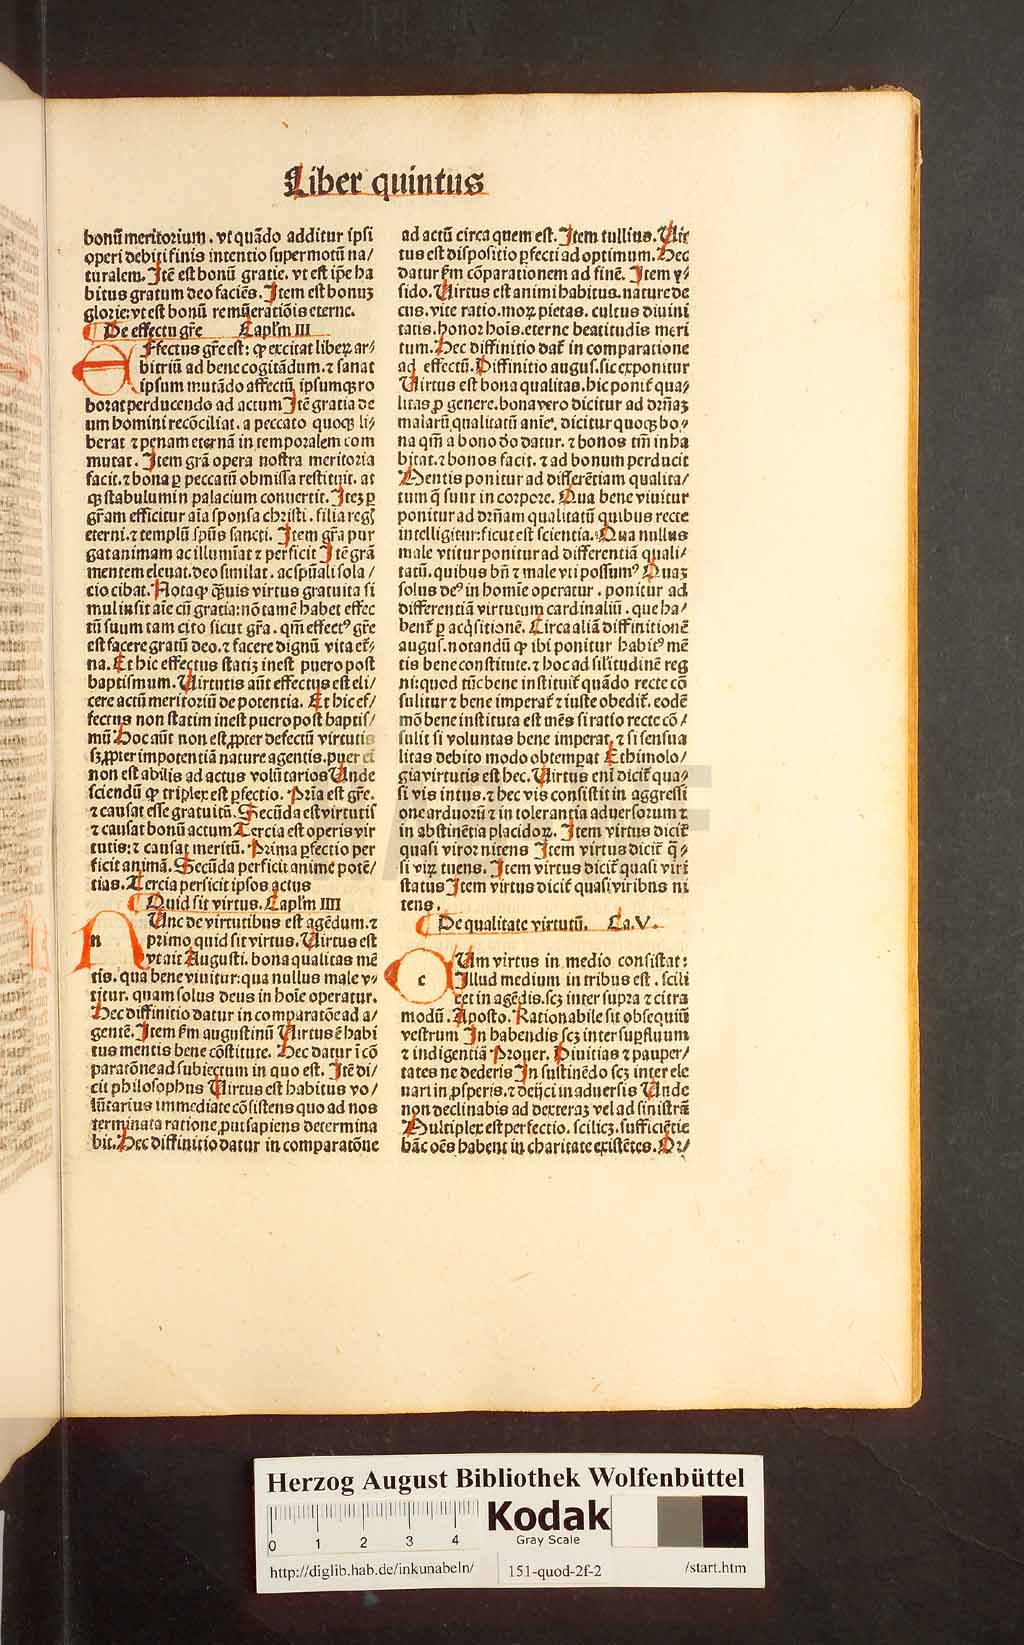 Liber quintus
bonū meritorium. vt quādo additur ipsi
operi debiti finis intentio super motū na/
turalem. Itē est bonū gratie. vt est ipe ha
bitus gratum deo faciēs. Item est bonuꝫ
glorie: vt est bonū remūeratiōis eterne.
De effectu gr̄e Caplm̄ III
Effectus gr̄e est: ꝙ excitat liberꝝ ar/
bitriū ad bene cogitādum. ⁊ sanat
ipsum mutādo affectū ipsumqꝫ ro
borat perducendo ad actum Itē gratia de
um homini recōciliat. a peccato quoqꝫ li/
berat ⁊ penam eternā in temporalem com
mutat. Item grā opera nostra meritoria
facit. ⁊ bona ꝑ peccatū obmissa restituit. at
qꝫ stabulum in palacium conuertit. Iteꝫ ꝑ
gr̄am efficitur aīa sponsa christi. filia regꝭ
eterni. ⁊ templū spūs sancti. Item gr̄a pur
gat animam ac illumīat ⁊ perficit Itē grā
mentem eleuat. deo similat. ac spūali sola/
cio cibat. Nota ꝙ q̄uis virtus gratuita si
mul insit aīe cū gratia: nō tamē habet effec
tū suum tam cito sicut gr̄a. qm̄ effectꝰ gr̄e
est facere gratū deo. ⁊ facere dignū vita et̄/
na. Et hic effectus statiꝫ inest puero post
baptismum. Uirtutis aūt effectus est eli/
cere actū meritoriū de potentia. Et hic ef/
fectus non statim inest puero post baptis/
mū. Hoc aūt non est ꝓpter defectū virtutis
sꝫ ꝓpter impotentiā nature agentis. puer ei
non est abilis ad actus volūtarios Unde
sciendū ꝙ triplex est ꝑfectio. Pria est gr̄e.
⁊ causat esse gratuitū. Secūda est virtutis
⁊ causat bonū actum Tercia est operis vir
tutis: ⁊ causat meritū. Prima ꝑfectio per
ficit animā. Secūda perficit anime potē/
tias. Tercia perficit ipsos actus
Quid sit virtus. Caplm̄ IIII
n Unc de virtutibus est agēdum. ⁊
primo quid sit virtus. Uirtus est
vt ait Augusti. bona qualitas mē
tis. qua bene viuitur: qua nullus male v/
titur. quam solus deus in hoīe operatur.
Hec diffinitio datur in comparatōe ad a/
gentē. Item ẜm augustinū Uirtus ē habi
tus mentis bene cōstitute. Hec datur ī cō
paratōne ad subiectum in quo est. Itē di/
cit philosophus Uirtus est habitus vo/
lūtarius immediate cōsistens quo ad nos
terminata ratione, put sapiens determina
bit. Hec diffinitio datur in comparatōne
ad actū circa quem est. Item tullius. Uir
tus est dispositio ꝑfecti ad optimum. Hec
datur ẜm cōparationem ad finē. Item y/
sido. Uirtus est animi habitus. nature de
cus. vite ratio. moꝝ pietas. cultus diuini
tatis. honor hoīs. eterne beatitudīs meri
tum. Hec diffinitio dat̄ in comparatione
ad effectū. Diffinitio augus. sic exponitur
Uirtus est bona qualitas. hic ponit̄ qua/
litas ꝓ genere. bona vero dicitur ad dr̄nāꝫ
malarū qualitatū anie. dicitur quoqꝫ bo/
na qm̄ a bono do datur. ⁊ bonos tm̄ inha
bitat. ⁊ bonos facit. ⁊ ad bonum perducit
Mentis ponitur ad differētiam qualita/
tum q̄ sunt in corpore. Qua bene viuitur
ponitur ad dr̄nam qualitatū quibus recte
intelligitur: sicut est scientia. Qua nullus
male vtitur ponitur ad differentiā quali/
tatū. quibus bn̄ ⁊ male vti possumꝰ Quaꝫ
solus deꝰ in homīe operatur. ponitur ad
differentiā virtutum cardinaliū. que ha/
bent̄ ꝑ acq̄sitionē. Circa aliā diffinitionē
augus. notandū ꝙ ibi ponitur habitꝰ mē
tis bene constitute. ⁊ hoc ad silitudinē reg
ni: quod tūc bene instituit̄ quādo recte cō
sulitur ⁊ bene imperat̄ ⁊ iuste obedit̄. eodē
mō bene instituta est mēs si ratio recte cō/
sulit si voluntas bene imperat, ⁊ si sensua
litas debito modo obtemꝑat Ethimolo/
gia virtutis est hec. Uirtus enī dicit̄ qua/
si vis intus. ⁊ hec vis consistit in aggressi
one arduorū ⁊ in tolerantia aduersorum ⁊
in abstinētia placidoꝝ. Item virtus dicit̄
quasi viror nitens Item virtus dicit̄ q̄/
si viꝝ tuens. Item virtus dicit̄ quasi viri
status Item virtus dicit̄ quasi viribus ni
tens.
De qualitate virtutū. Ca. V.
c Um virtus in medio consistat:
Illud medium in tribus est. scili
cet in agēdis. scꝫ inter supra ⁊ citra
modū. Aposto. Rationabile sit obsequiū
vestrum In habendis scꝫ inter suꝑfluum
⁊ indigentiā Prouer. Diuitias ⁊ pauper/
tates ne dederis In sustinēdo scꝫ inter ele
uari in ꝓsperis. ⁊ deijci in aduersis Unde
non declinabis ad dexteraꝫ vel ad sinistrā
Multiplex est perfectio. scilicꝫ. sufficiētie
hāc oēs habent in charitate existētes. Pr/
Herzog August Bibliothek Wolfenbüttel
Kodak
Gray Scale
0 1 2 3 4
http://diglib.hab.de/inkunabeln/ 151-quod-2f-2 /start.htm